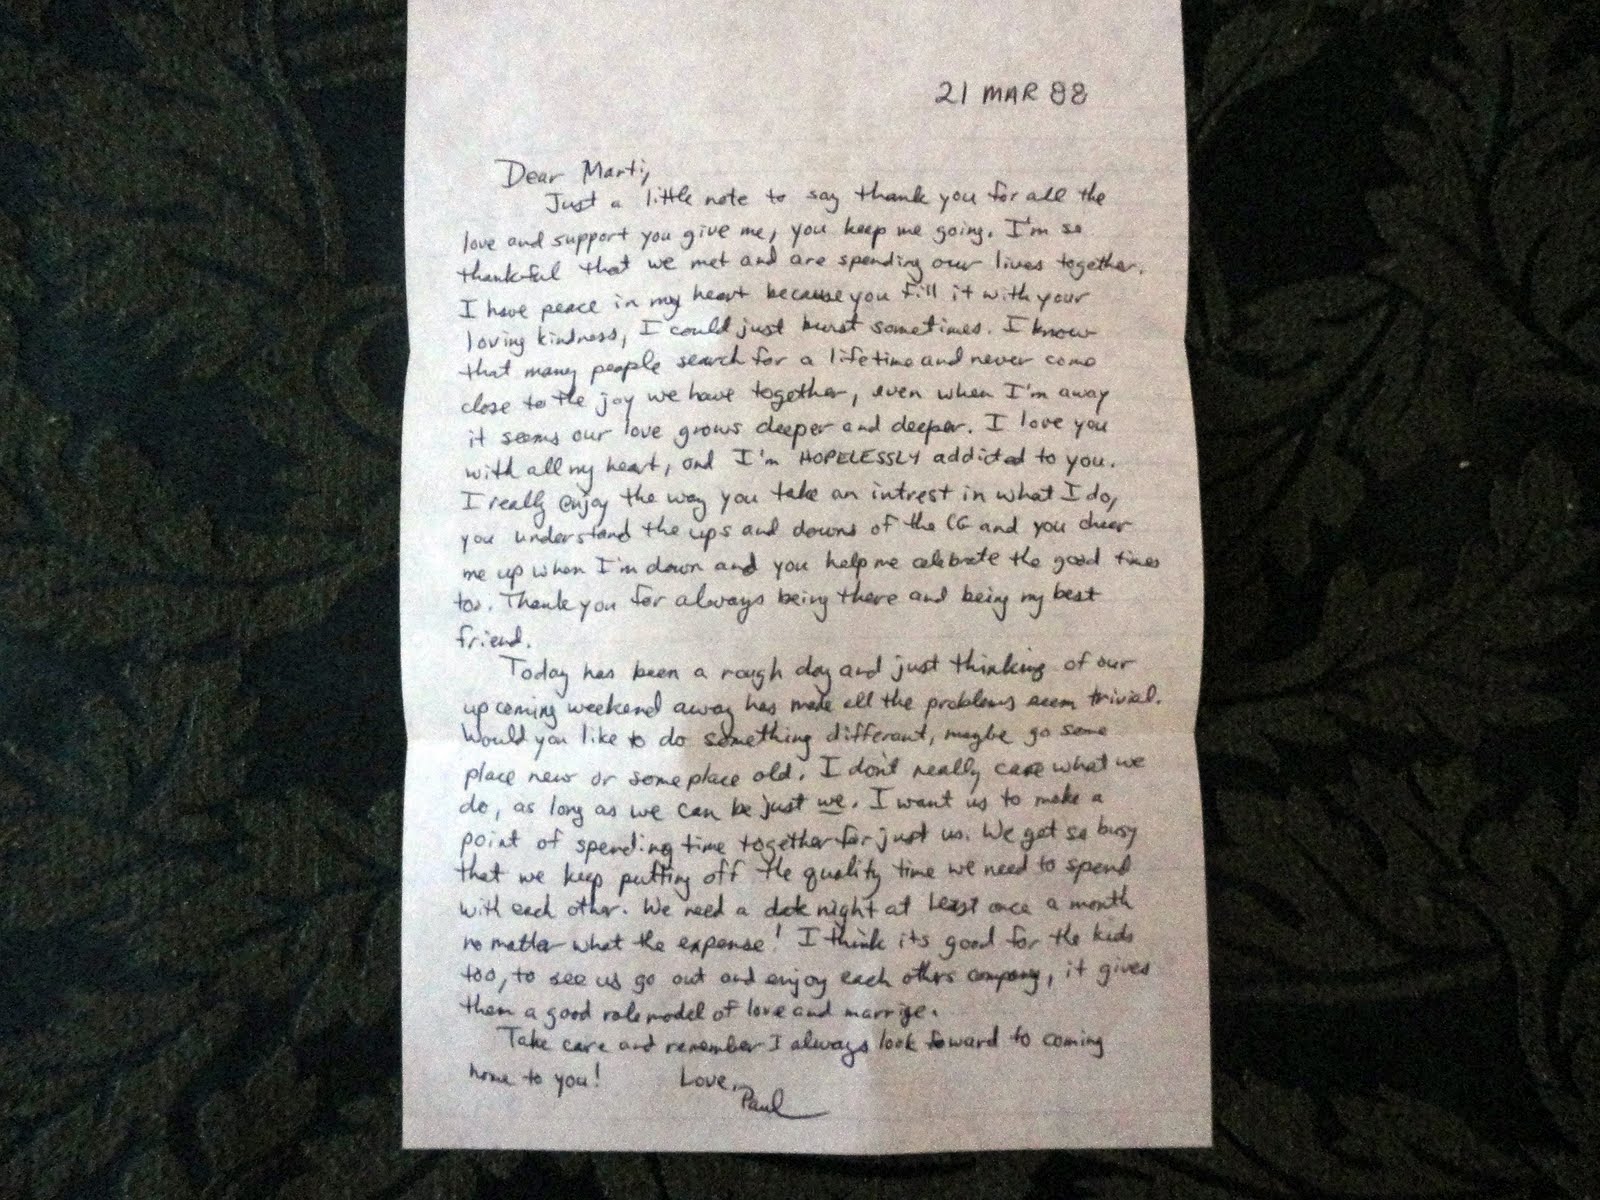 21 MAR 88
Dear Marti,
Just a little note to say thank you for all the
love and support you give me, you keep me going. I'm so
thankful that we met and are spending our lives together.
I have peace in my heart because you fill it with your
loving kindness, I could just burst sometimes. I know
that many people search for a lifetime and never come
close to the joy we have together, even when I'm away
it seems our love grows deeper and deeper. I love you
with all my heart, and I'm HOPELESSLY addicted to you.
I really enjoy the way you take an intrest in what I do,
you understand the ups and downs of the CG and you cheer
me up when I'm down and you help me celebrate the good times
too. Thank you for always being there and being my best
friend.
Today has been a rough day and just thinking of our
upcoming weekend away has made all the problems seem trivial.
Would you like to do something different, maybe go some
place new or some place old. I don't really care what we
do, as long as we can be just we. I want us to make a
point of spending time together for just us. We get so busy
that we keep putting off the quality time we need to spend
with each other. We need a date night at least once a month
no matter what the expense! I think its good for the kids
too, to see us go out and enjoy each others company, it gives
them a good role model of love and marrige.
Take care and remember I always look foward to coming
home to you! Love,
Paul